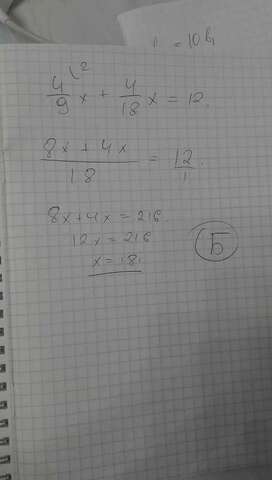 = 10
4/9 x + 4/18 x = 12.
(8x + 4x)/18 = 12/1.
8x+4x = 216
12x = 216
x = 18.
Б